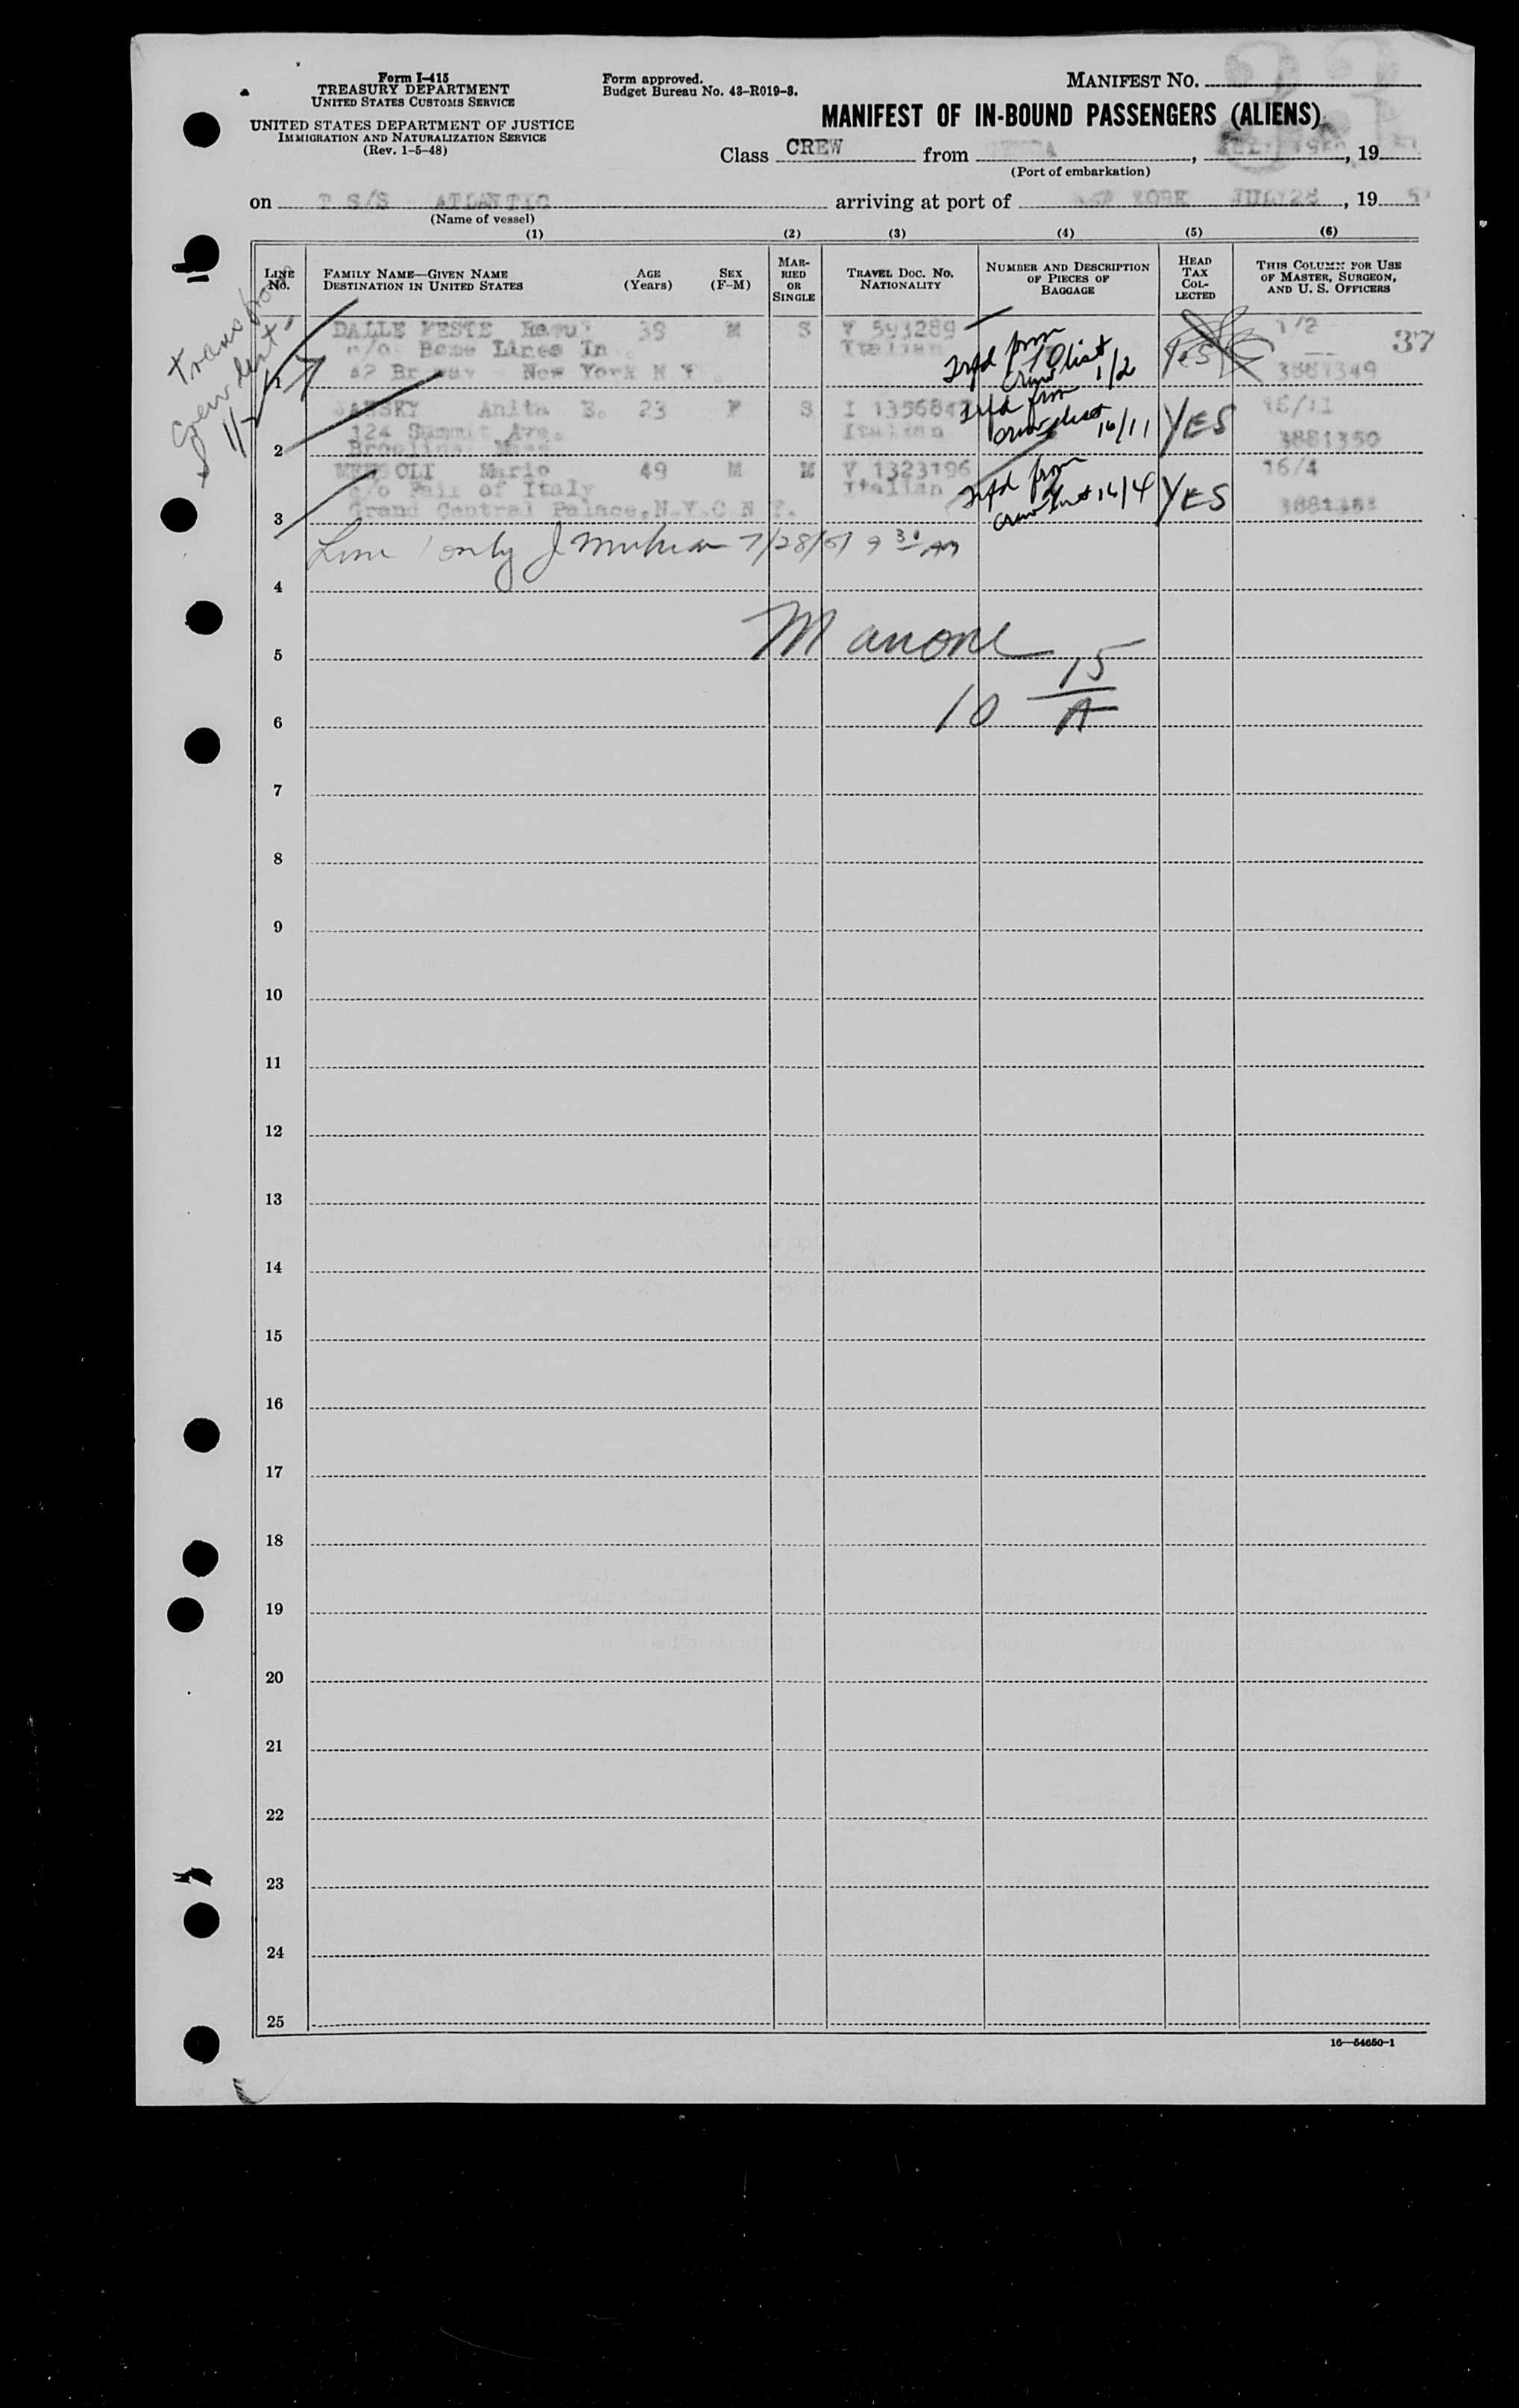 Form I-415
TREASURY DEPARTMENT
UNITED STATES CUSTOMS SERVICE
UNITED STATES DEPARTMENT OF JUSTICE
IMMIGRATION AND NATURALIZATION SERVICE
(Rev. 1-5-48)
Form approved.
Budget Bureau No. 43-R019-3.
MANIFEST NO.
MANIFEST OF IN-BOUND PASSENGERS (ALIENS)
Class CREW from , , 19
(Port of embarkation)
on T S/S ATLANTIC arriving at port of NEW YORK JULY 28, 19 5
(Name of vessel)
(1) (2) (3) (4) (5) (6)
LINE No.
FAMILY NAME—GIVEN NAME
DESTINATION IN UNITED STATES
AGE (Years)
SEX (F-M)
MARRIED OR SINGLE
TRAVEL DOC. NO.
NATIONALITY
NUMBER AND DESCRIPTION OF PIECES OF BAGGAGE
HEAD TAX COLLECTED
THIS COLUMN FOR USE OF MASTER, SURGEON, AND U. S. OFFICERS
DALLE FESTE 39 M S V 593289 Trfd from 1/2 37
c/o Home Lines In Italian crew list 1/2 Yes
1 42 New York N Y 3881349
Anita E. 23 F S I 1356842 Trfd from
124 Summit Ave. Italian crew list 16/11 YES 16/11
2 3881350
Mario 49 M M V 1323196 Trfd from 16/4
c/o Fair of Italy Italian
3 Grand Central Palace, N.Y.C N Y. crew list 16/4 YES
Line 1 only 7/28/51 9 30 AM
4
Manone
5
10 15/A
6
7
8
9
10
11
12
13
14
15
16
17
18
19
20
21
22
23
24
25
16—54650-1